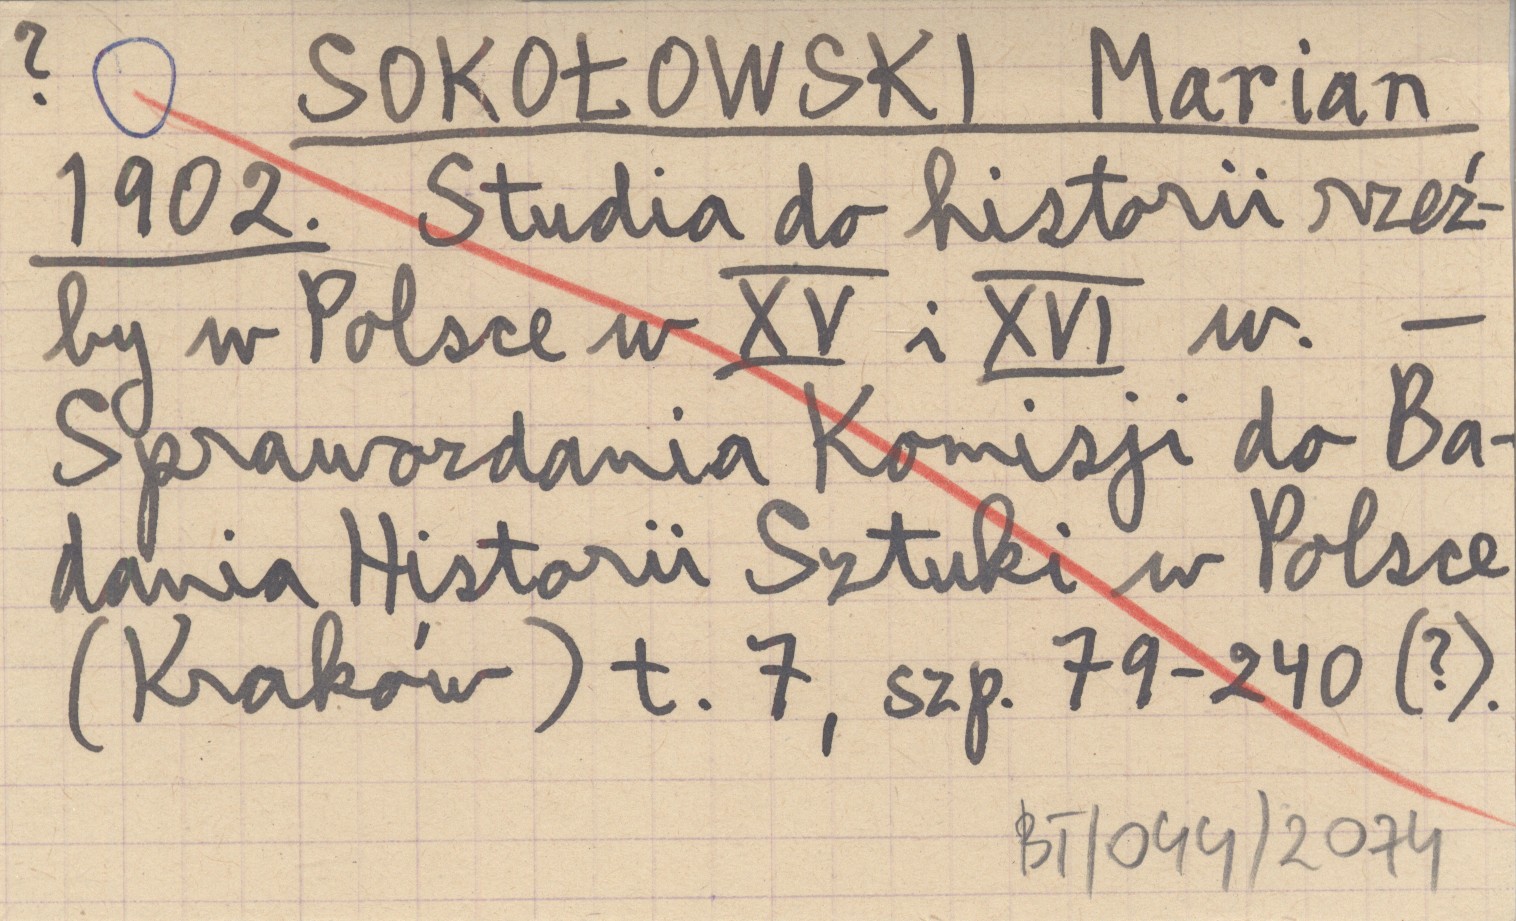 ? SOKOŁOWSKI Marian
1902. Studia do historii rzeź-
by w Polsce w XV i XVI w. —
Sprawozdania Komisji do Ba-
dania Historii Sztuki w Polsce
(Kraków) t. 7, szp. 79-240 (?).
BT/044/2074